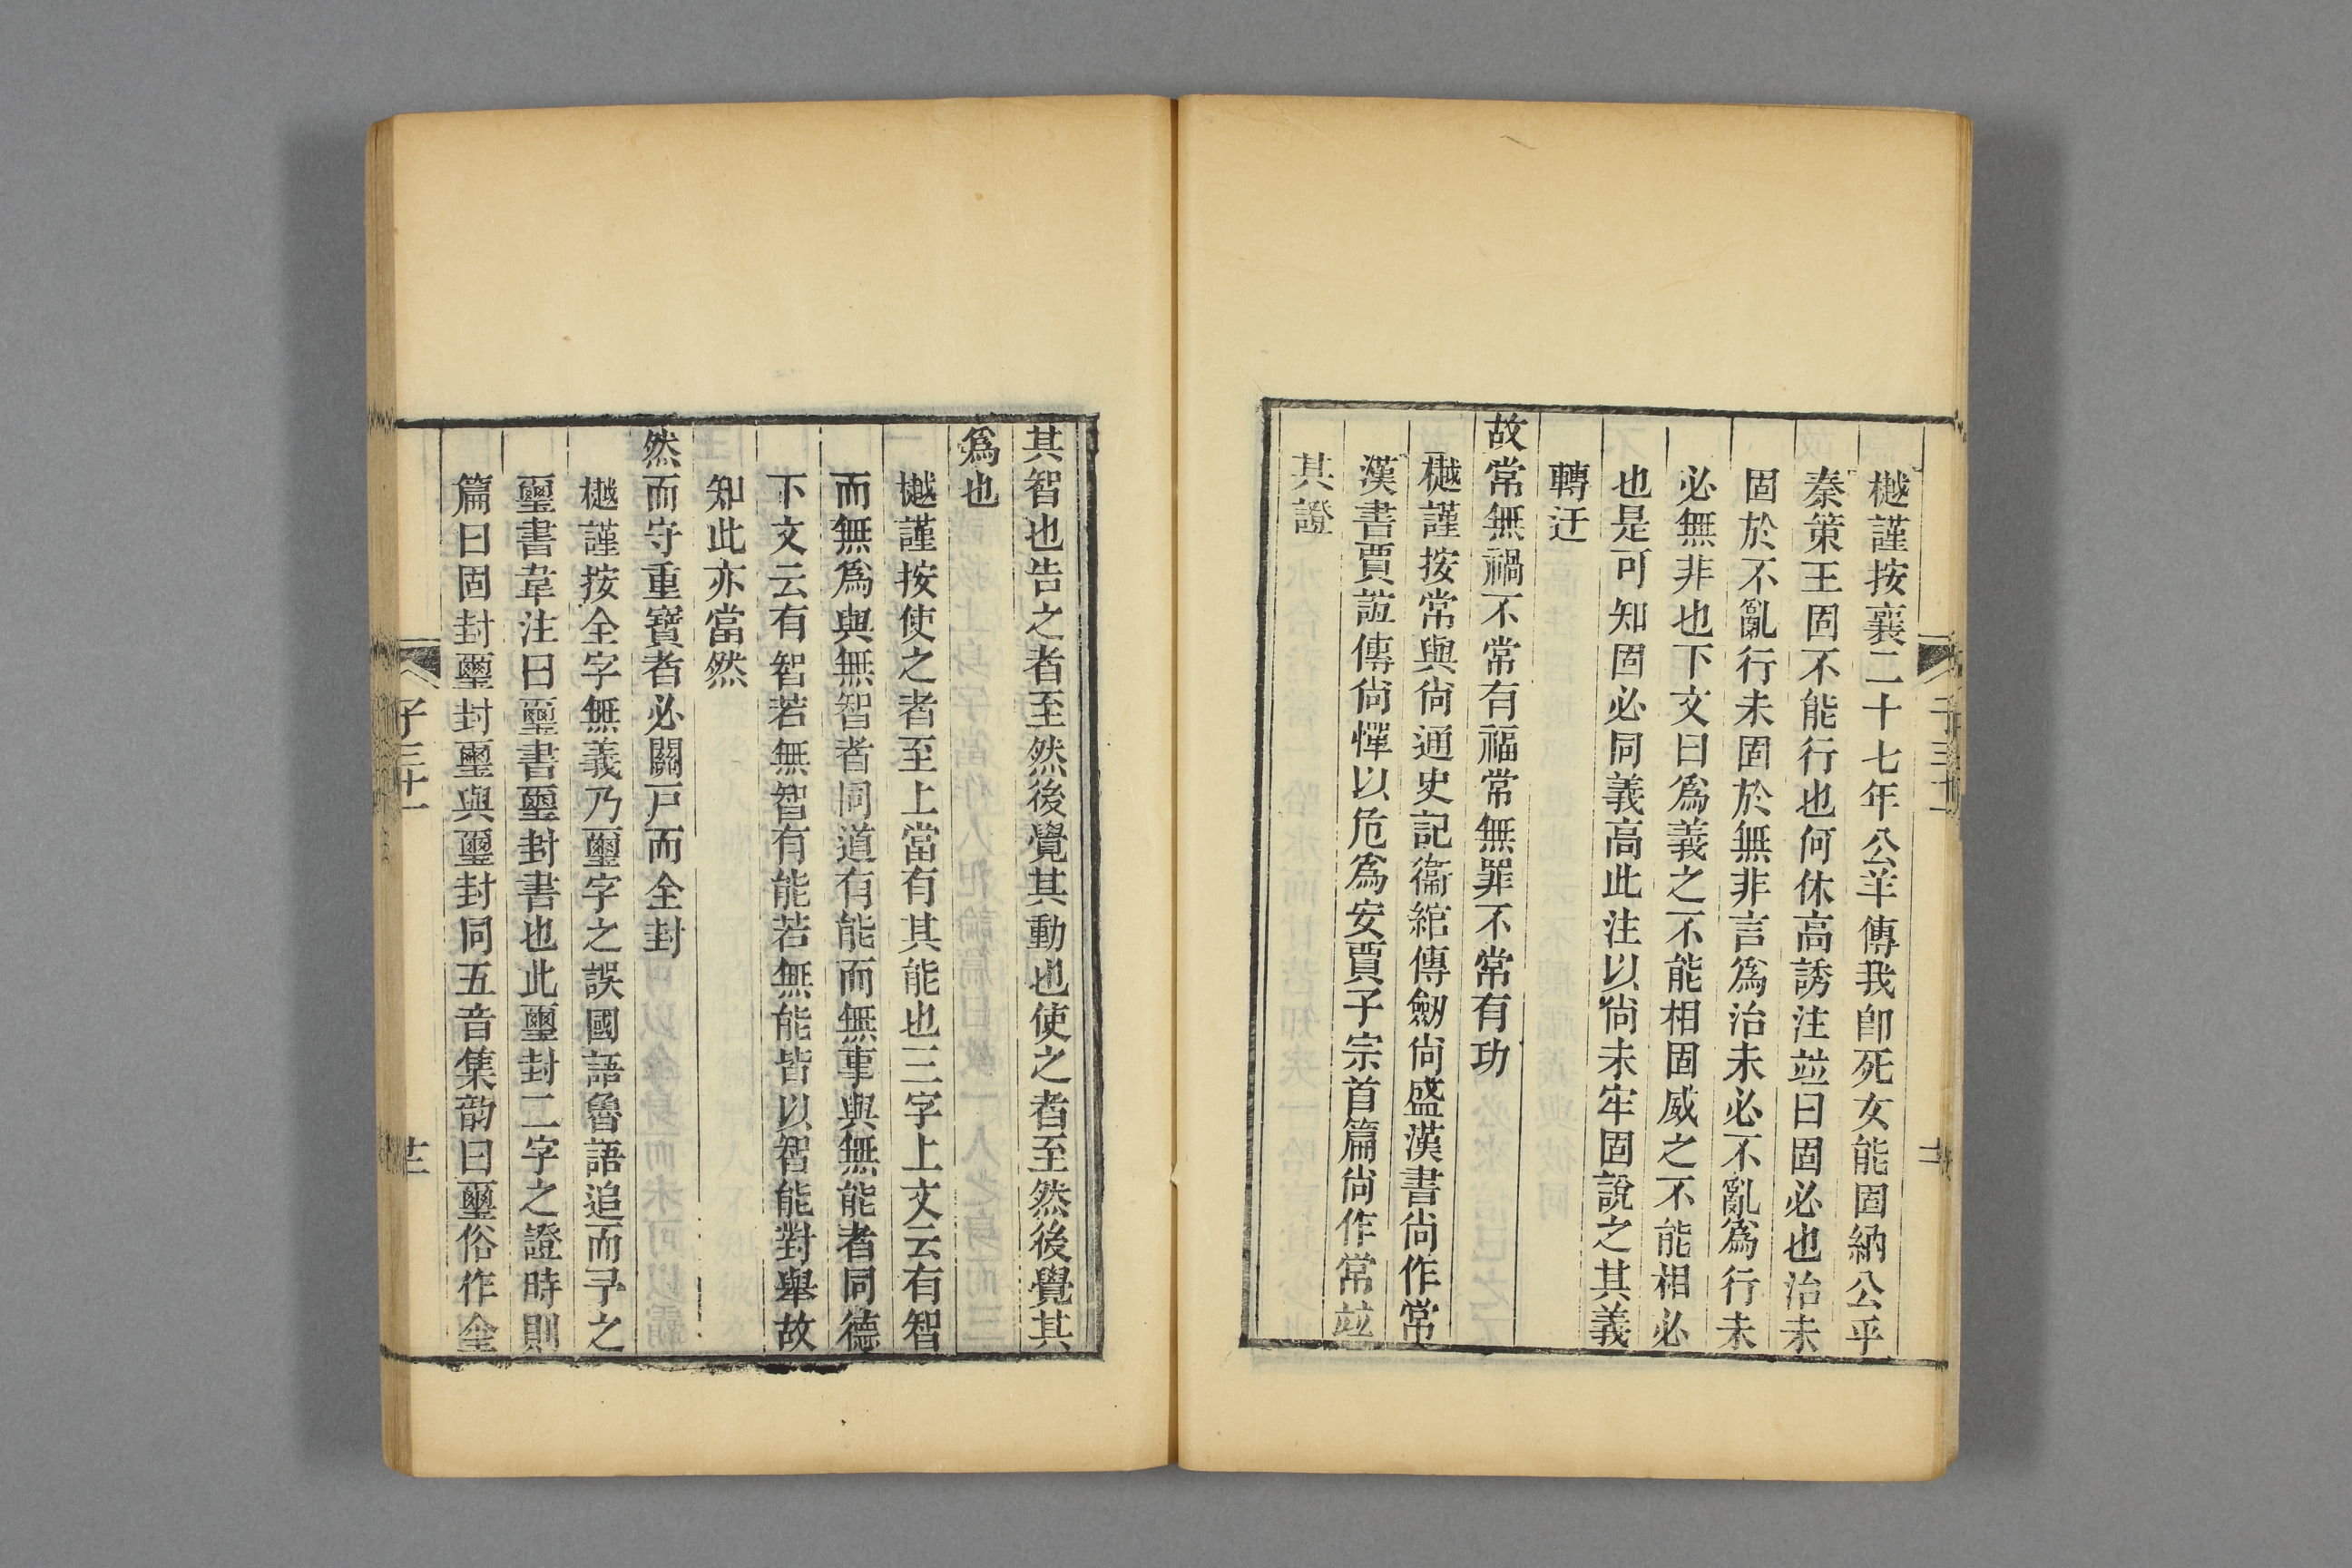 樾謹按襄二十七年公羊傳我卽死女能固納公乎
秦策王固不能行也何休高誘注竝曰固必也治未
固於不亂行未固於無非言爲治未必不亂爲行未
必無非也下文曰爲義之不能相固威之不能相必
也是可知固必同義高此注以尙未牢固說之其義
轉迂
故常無禍不常有福常無罪不常有功
樾謹按常與尙通史記衞綰傳劒尙盛漢書尙作常
漢書賈誼傳尙憚以危爲安賈子宗首篇尙作常竝
其證
其智也告之者至然後覺其動也使之者至然後覺其
爲也
樾謹按使之者至上當有其能也三字上文云有智
而無爲與無智者同道有能而無事與無能者同德
下文云有智若無智有能若無能皆以智能對舉故
知此亦當然
然而守重寶者必關戸而全封
樾謹按全字無義乃璽字之誤國語魯語追而予之
璽書韋注曰璽書璽封書也此璽封二字之證時則
篇曰固封璽封璽與璽封同五音集韵曰璽俗作全
子三十一